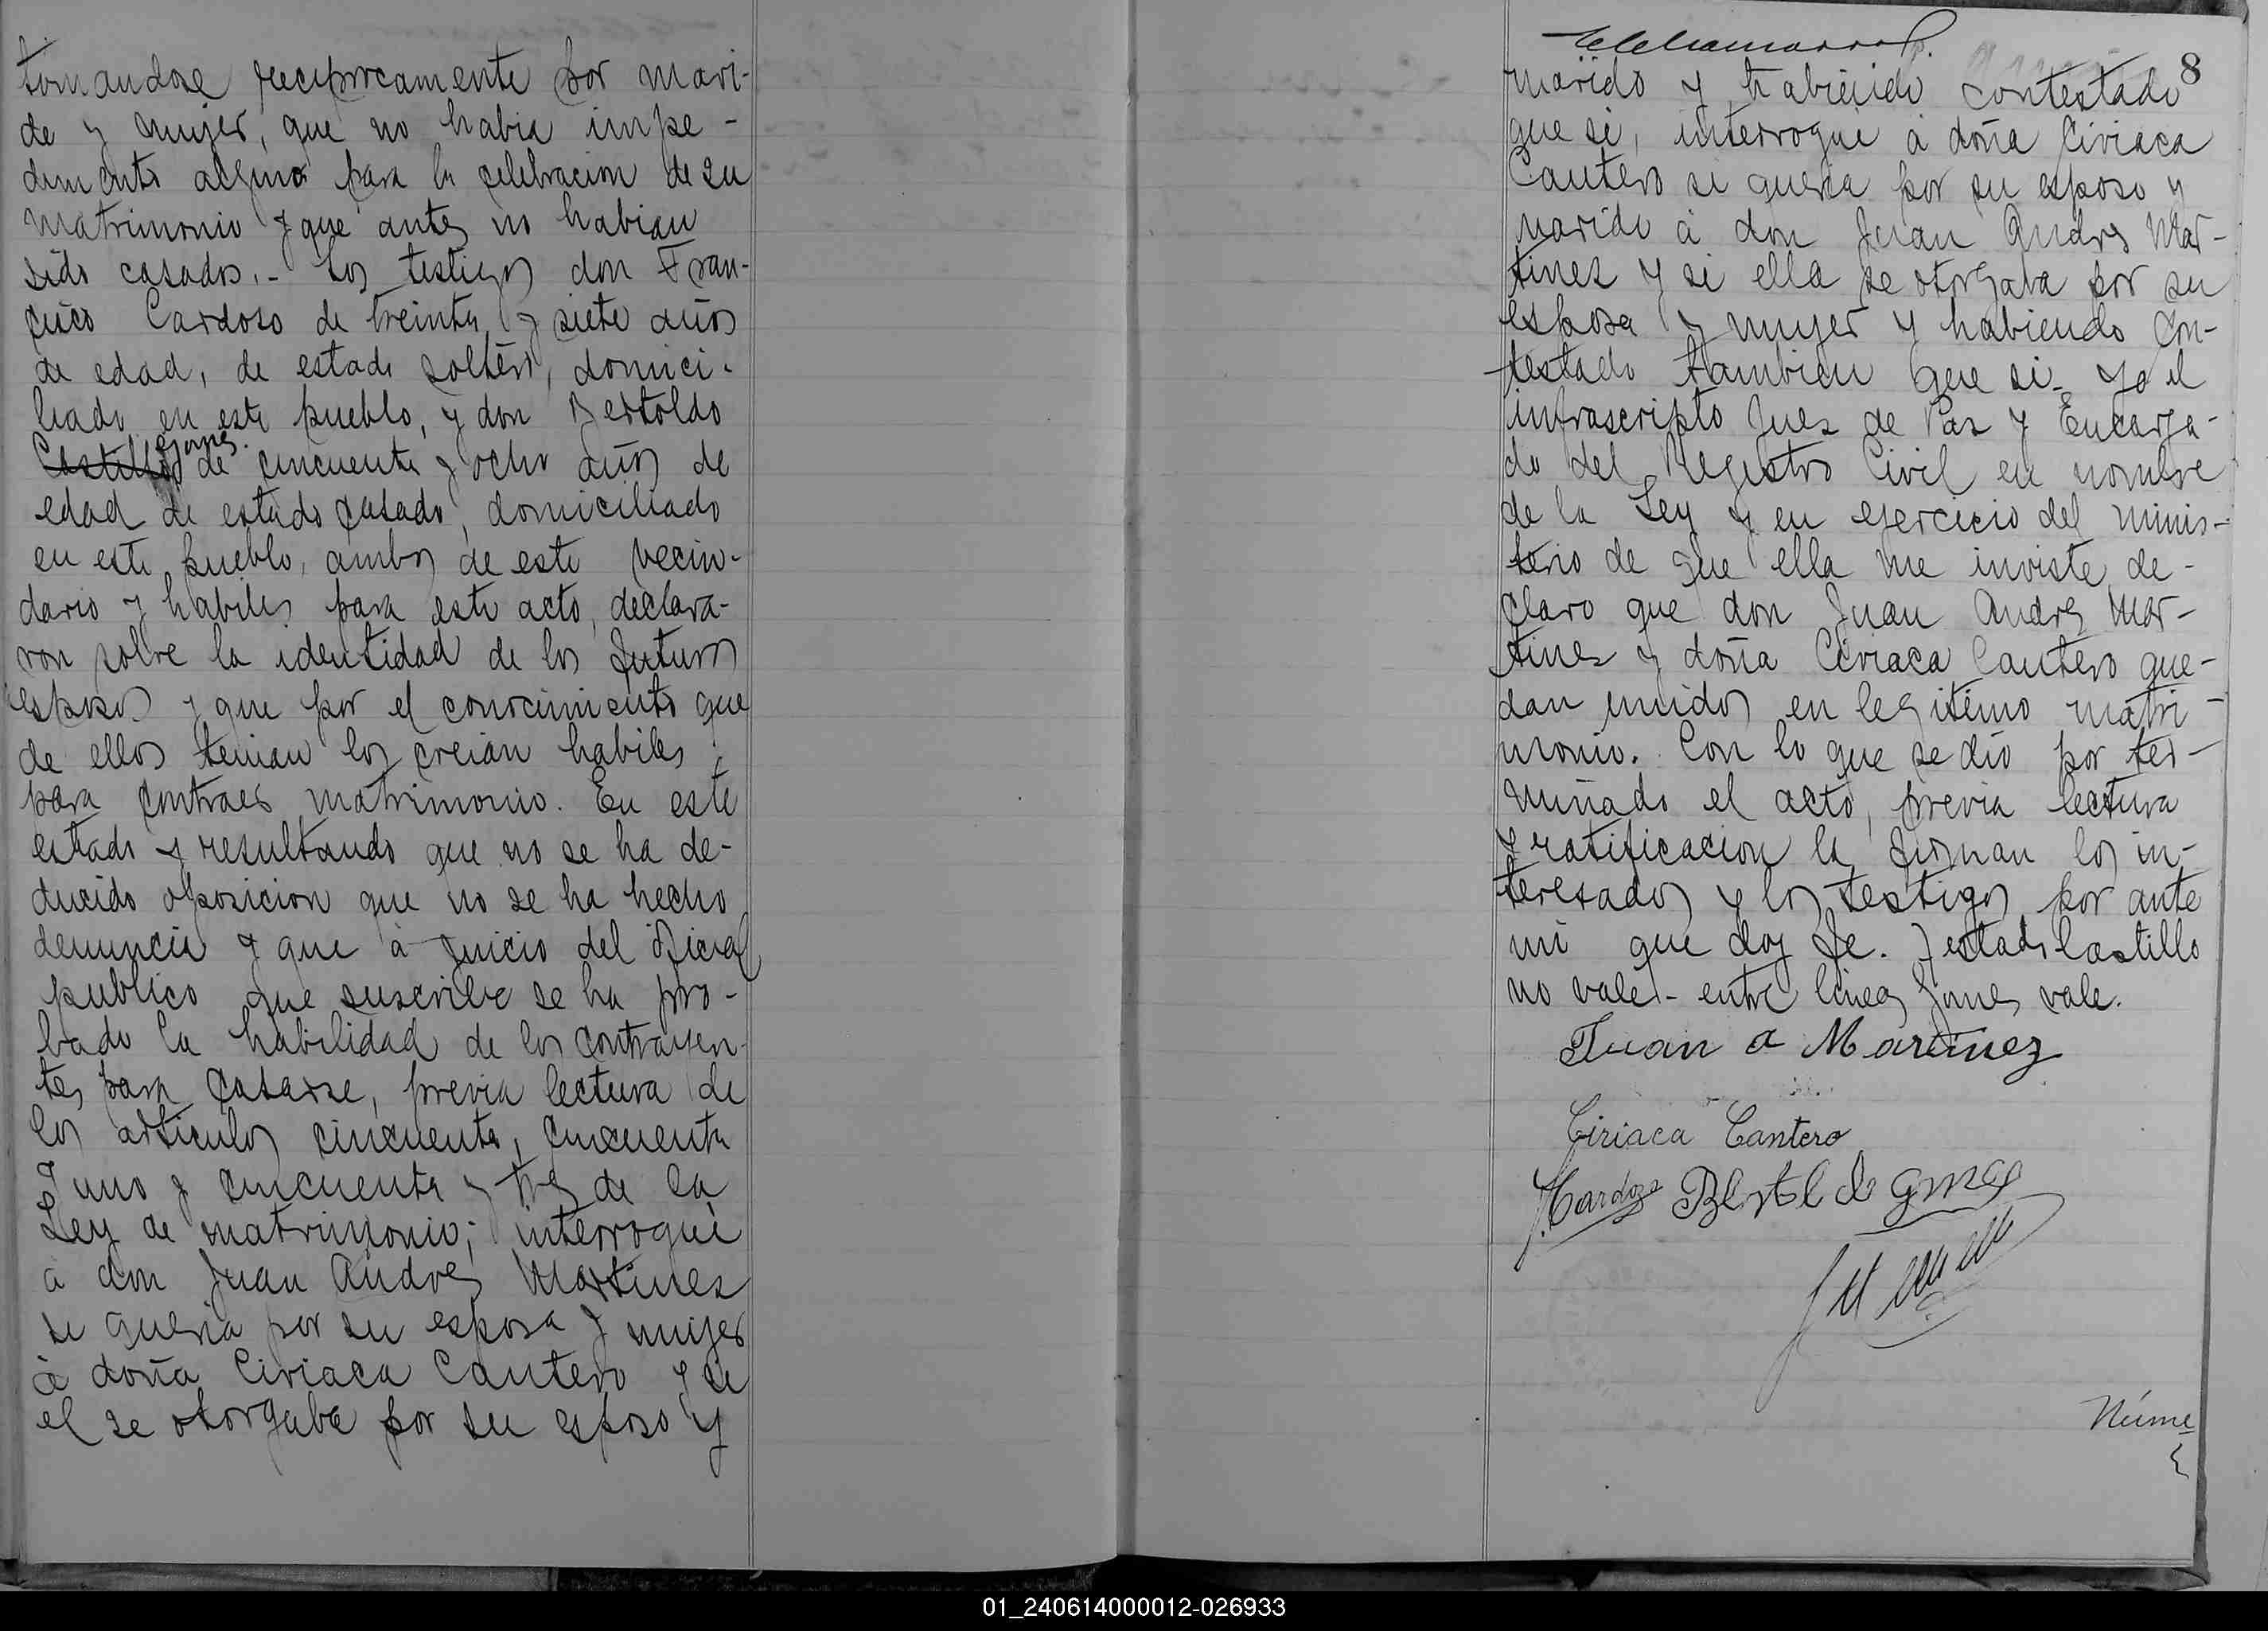 tomandose reciprocamente por mari-
de y mujer, que no habia impe-
dimento alguno para la celebracion de su
matrimonio y que antes no habian
sido casados.- Los testigos don Fran-
cisco Cardoso de treinta y siete años
de edad, de estado soltero, domici-
liado en este pueblo, y don Bertoldo
Gomes.
Castillo de cincuenta y ocho años de
edad de estado casado, domiciliado
en este pueblo, ambos de este vecin-
dario y habiles para este acto, declara-
ron sobre la identidad de los futuros
esposos y que por el conocimiento que
de ellos tenian los creian habiles
para contraer matrimonio. En este
estado y resultando que no se ha de-
ducido oposicion que no se ha hecho
denuncia y que á juicio del oficial
publico que suscribe se ha pro-
bado la habilidad de los contrayen-
tes para casarse, previa lectura de
los articulos cincuenta, cincuenta
y uno y cincuenta y tres de la
Ley de matrimonio; interroqué
á don Juan Andres Martines
si queria por su esposa y mujer
á doña Ciriaca Cantero y si
el se otorgaba por su esposo y
8
marido y habiendo contestado
que si, interroqué á doña Ciriaca
Cantero si queria por su esposo y
marido á don Juan Andres Mar-
tines y si ella se otorgaba por su
esposa y mujer y habiendo con-
testado tambien que si- yo el
infrascripto Jues de Pas y Encarga-
do del Registro Civil en nombre
de la Ley y en ejercicio del minis-
terio de que ella me inviste de-
claro que don Juan Andres Mar-
tines y doña Ciriaca Cantero que-
dan unidos en legitimo matri-
monio. Con lo que se dió por ter-
minado el acto, previa lectura
y ratificacion la firman los in-
teresados y los testigos por ante
mi que doy fe. Testado Castillo
no vale- entre lineas Gomes vale.
Juan a Martinez
Ciriaca Cantero
Cardozo Bertoldo Gomez
Núme
01_240614000012-026933